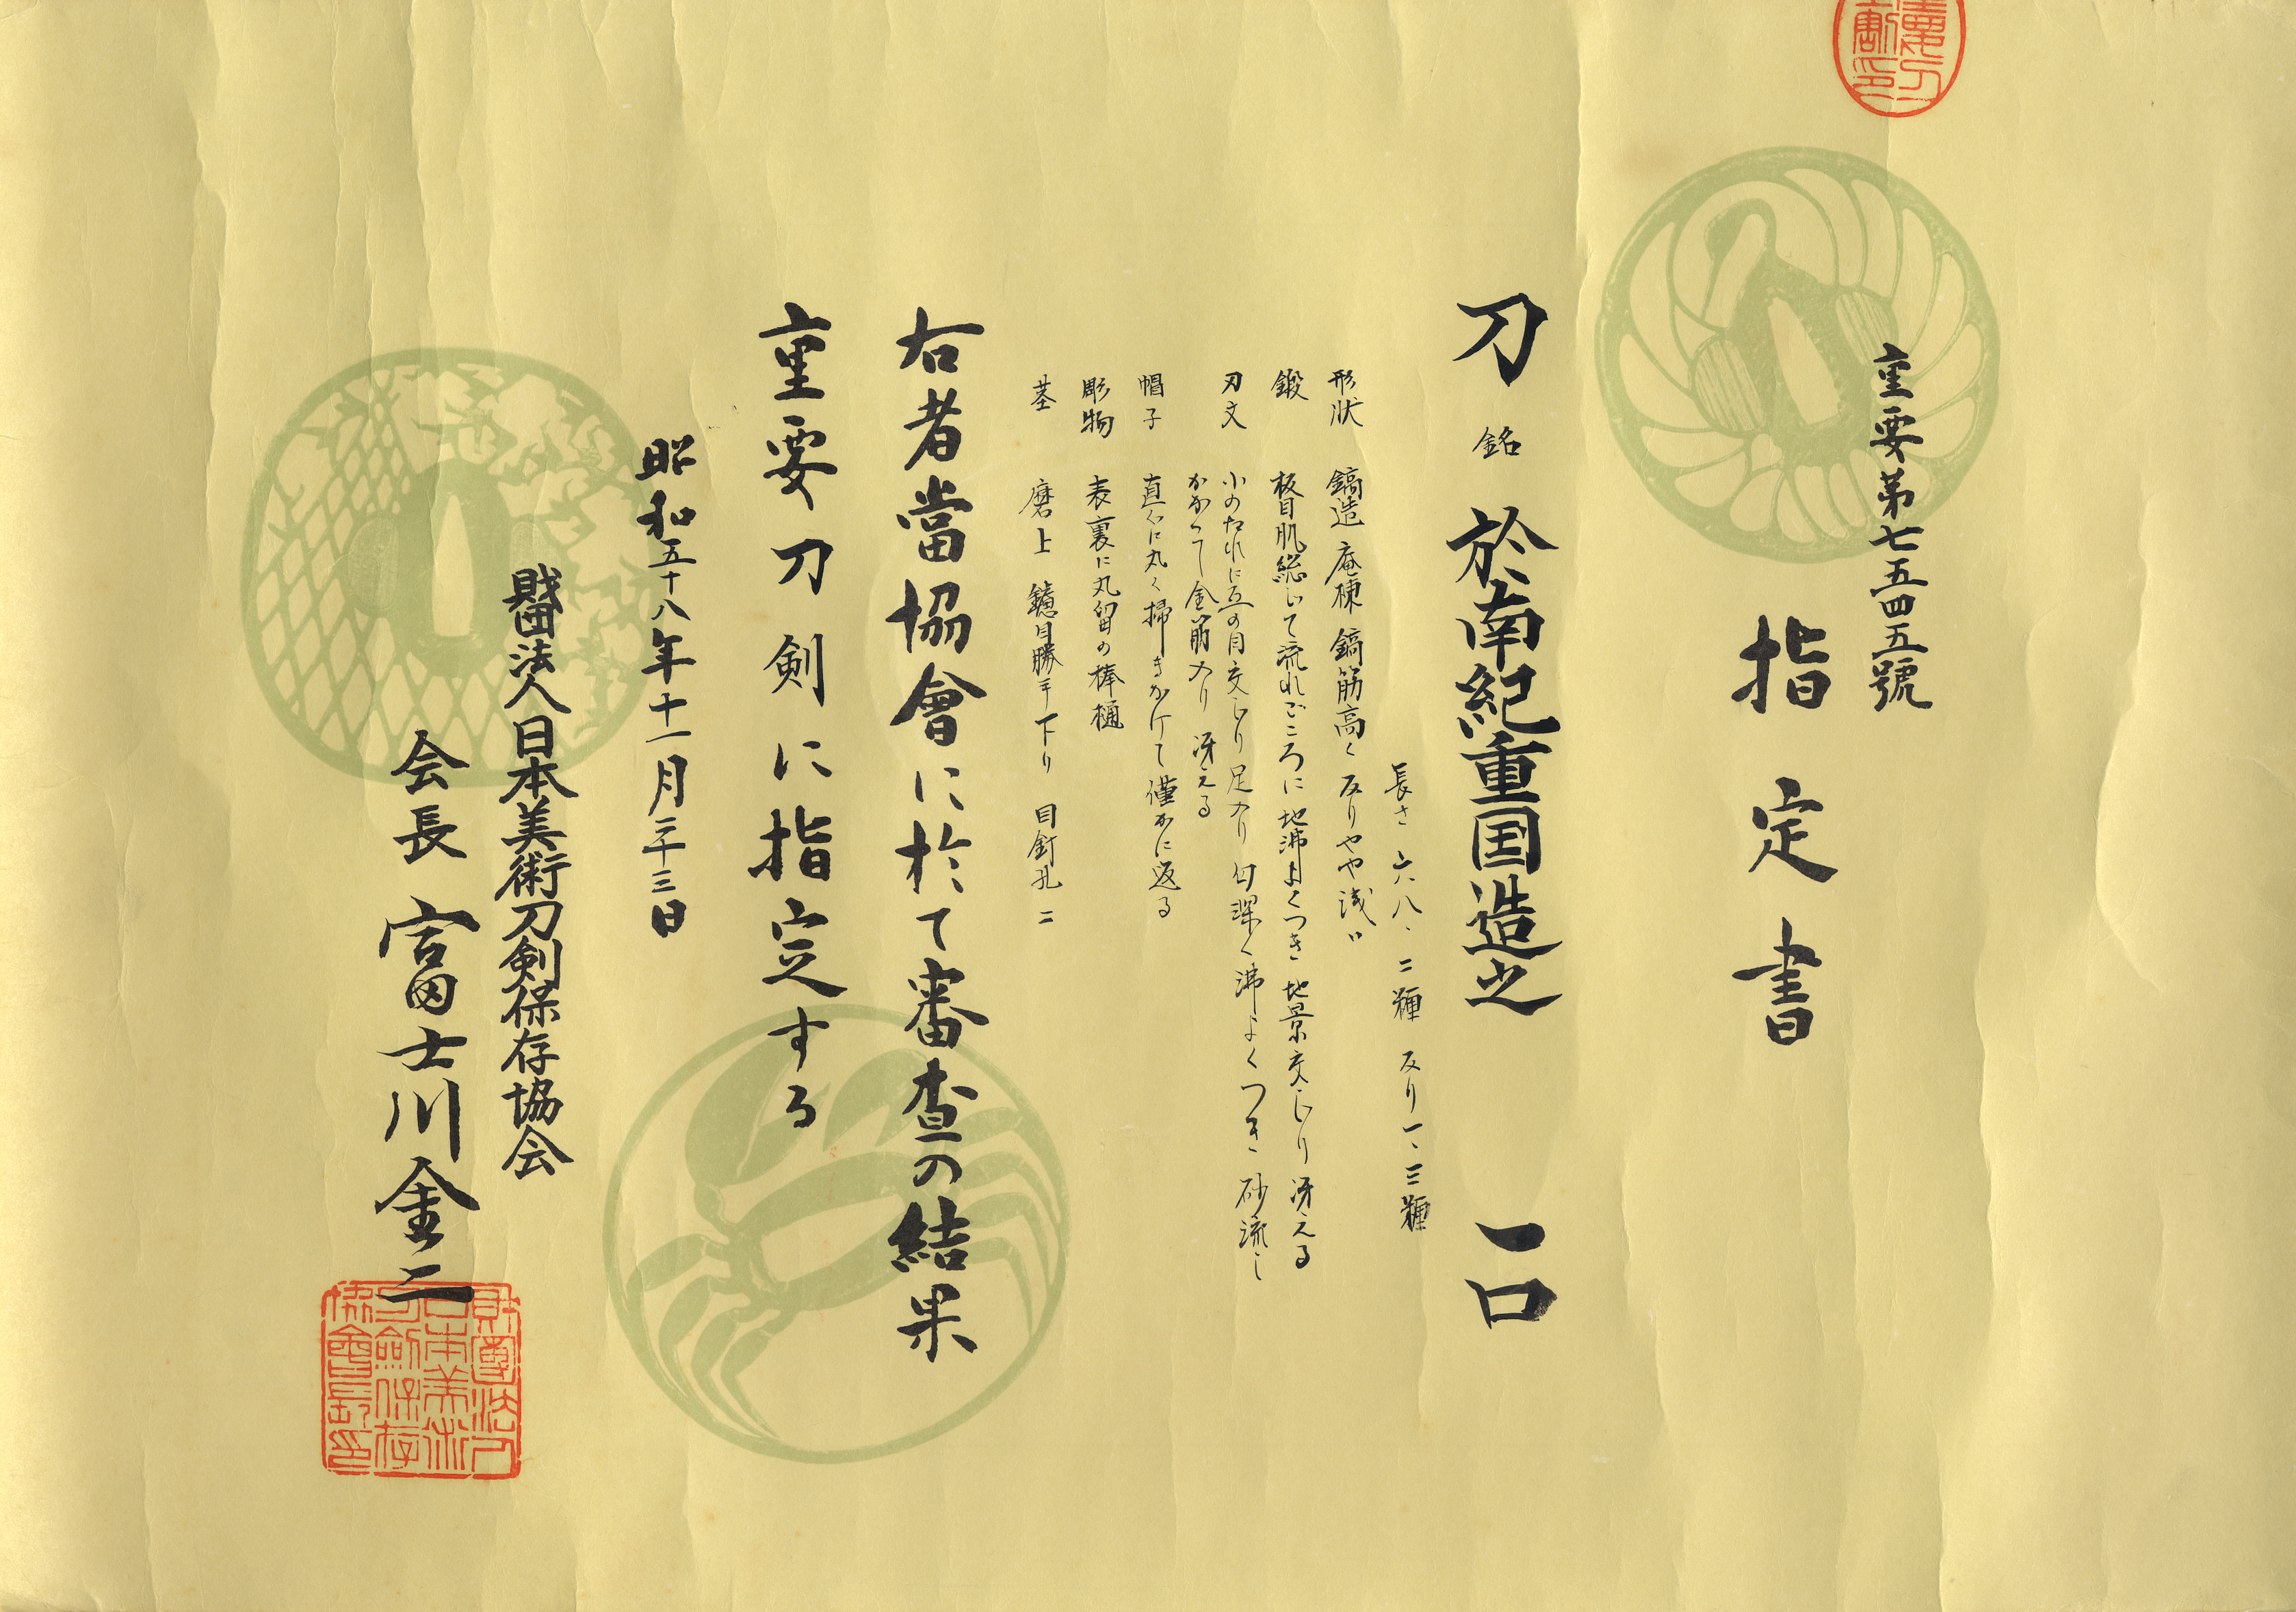 重要第七五四五號
指定書
刀 銘 於南紀重国造之 一口
長さ 六八、二糎 反り一、三糎
形状 鎬造 庵棟 鎬筋高く 反りやや浅い
鍛 板目肌総じて流れごころに 地沸よくつき 地景交じり 冴える
刃文 小のたれに互の目交じり 足入り 匂深く 沸よくつき 砂流し
かかって 金筋入り 冴える
帽子 直ぐに丸く掃きかけて 僅かに返る
彫物 表裏に丸留の棒樋
茎 磨上 鑢目勝手下り 目釘孔二
右者當協會に於て審査の結果
重要刀剣に指定する
昭和五十八年十一月二十三日
財団法人日本美術刀剣保存協会
会長 富士川金二
財團法人日本美術刀劍保存協會會長印